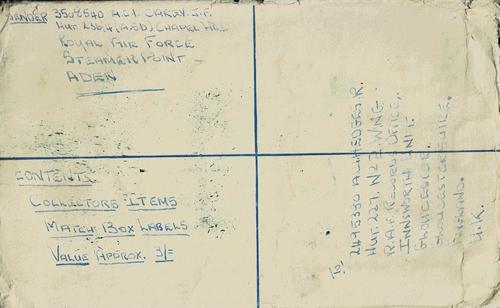 SENDER 3508540 A.C.1. CAREY. J.F.
HUT. 256, (A.S.D) CHAPEL HILL
ROYAL AIR FORCE
STEAMER POINT
ADEN
CONTENTS.
COLLECTORS ITEMS
MATCH BOX LABELS
VALUE APPROX. 3/=
To,
R.
HUT. 227, No 2. WING.
R.A.F. RECORD OFFICE,
INNSWORTH UNIT
GLOUCESTER.
GLOUCESTERSHIRE.
ENGLAND.
U.K.